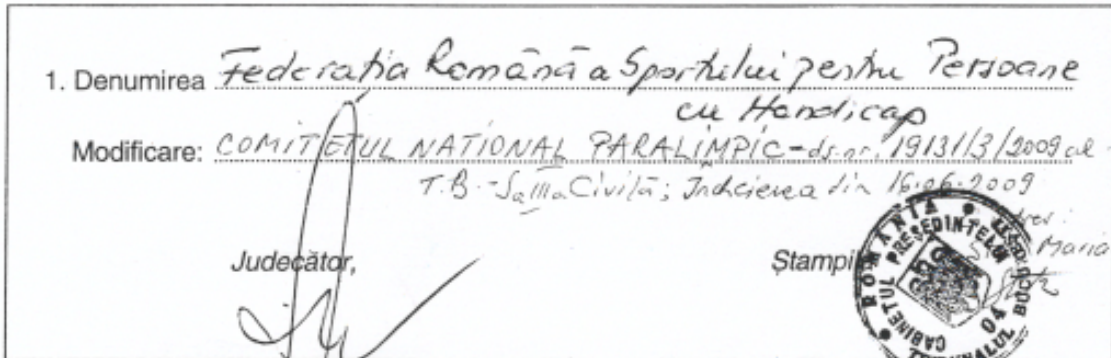 1. Denumirea Federația Română a Sportului pentru Persoane
cu Handicap
Modificare: COMITETUL NAȚIONAL PARALIMPIC - ds. nr. 19131/3/2009 al
T.B. - S. a III a Civilă; Încheierea din 16.06.2009
Maria
Judecător,
ROMÂNIA
CABINETUL PREȘEDINTELUI
TRIBUNALUL
04